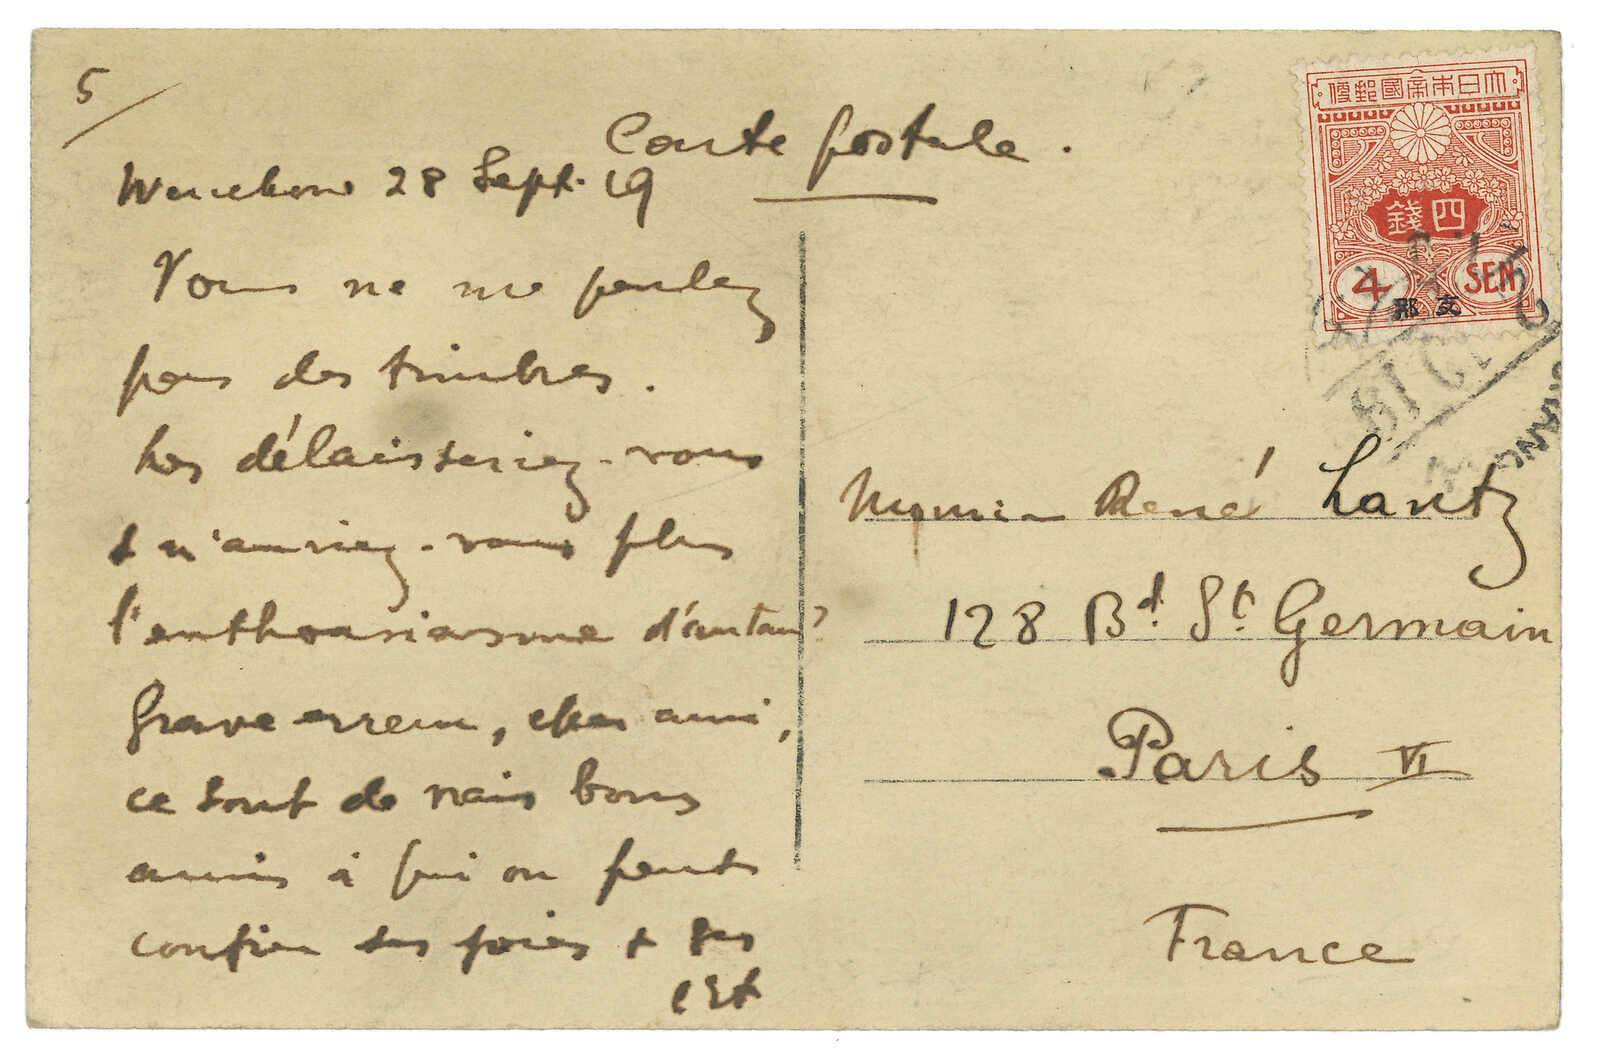 5/
Carte postale.
28 Sept. 19
Vous ne me parlez
pas des timbres.
Les délaisseriez-vous
& n'auriez-vous plus
l'enthousiasme d'antan?
Grave erreur, cher ami,
ce sont de vrais bons
amis à qui on peut
confier ses joies & ses
大日本帝國郵便
四錢
4 SEN
支那
Monsieur René Lantz
128 Bd. St. Germain
Paris VI
France